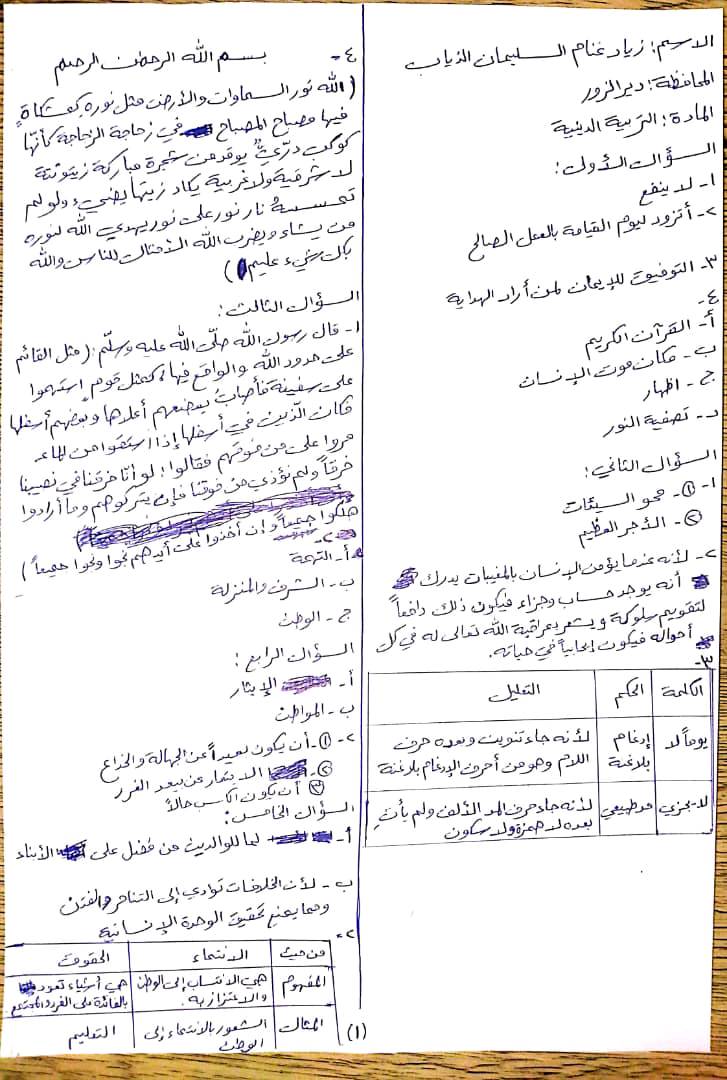 الاسم: زياد غنام السليمان الذياب
المحافظة: دير الزور
المادة: التربية الدينية
السؤال الأول:
١- لا ينفع
٢- أتزود ليوم القيامة بالعمل الصالح
٣- التوفيق للإيمان لمن أراد الهداية
٤-
أ- القرآن الكريم
ب- مكان موت الإنسان
ج- اظهار
د- تصفية النور
السؤال الثاني:
١- ①- محو السيئات
②- الأجر العظيم
٢- لأنه عندما يؤمن الإنسان بالمغيبات يدرك
أنه يوجد حساب وجزاء فيكون ذلك دافعاً
لتقويم سلوكه ويشعر بمراقبة الله تعالى له في كل
أحواله فيكون إيجابياً في حياته.
٣-
الكلمة الحكم التعليل
يوماً لا إدغام بلاغنة لأنه جاء تنوين وبعده حرف
اللام وهو من أحرف الإدغام بلاغنة
لا يجزي مد طبيعي لأنه جاء حرف المد الألف ولم يأتِ
بعده لا همزة ولا سكون
٤- بسم الله الرحمن الرحيم
(الله نور السماوات والأرض مثل نوره كمشكاةٍ
فيها مصباح المصباح في زجاجة الزجاجة كأنّها
كوكب درّيٌّ يوقد من شجرة مباركة زيتونة
لا شرقية ولا غربية يكاد زيتها يضيء ولو لم
تمسسه نار نور على نور يهدي الله لنوره
من يشاء ويضرب الله الأمثال للناس والله
بكل شيء عليم)
السؤال الثالث:
١- قال رسول الله صلّى الله عليه وسلّم: (مثل القائم
على حدود الله والواقع فيها، كمثل قومٍ استهموا
على سفينة فأصاب بعضهم أعلاها وبعضهم أسفلها
فكان الذين في أسفلها إذا استقوا من الماء
مروا على من فوقهم فقالوا: لو أنّا خرقنا في نصيبنا
خرقاً ولم نؤذي من فوقنا فإن يتركوهم وما أرادوا
هلكوا جميعاً وإن أخذوا على أيديهم نجوا ونجوا جميعاً)
٢-
أ- التهمة
ب- الشرف والمنزلة
ج- الوطن
السؤال الرابع:
أ- الإيثار
ب- المواطن
٢- ①- أن يكون بعيداً عن الجهالة والخداع
② الابتعاد عن بيع الغرر
③ أن يكون الكاسب حالاً
السؤال الخامس:
أ- لما للوالدين من فضل على الأبناء
ب- لأن الخلافات تؤادي إلى التناحر والفتن
ومما يمنع تحقيق الوحدة الإنسانية
٢-
من حيث الانتماء الحقوق
المفهوم هي الانتساب إلى الوطن والاعتزاز به. هي أشياء تعود
بالفائدة على الفرد والمجتمع
المثال الشعور بالانتماء إلى الوطن التعليم
(١)